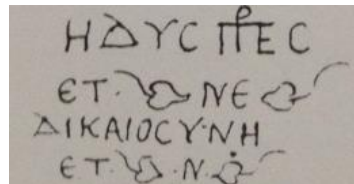 ΗΔΥϹ ΠΡΕϹ
ΕΤ· ❧ ΝΕ ❧
ΔΙΚΑΙΟϹΥ·ΝΗ
ΕΤ· ❧ · Ν · ❧